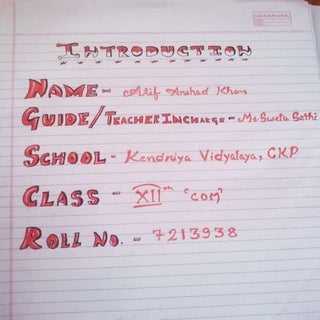 INTRODUCTION
NAME - Atif Arshad Khan
GUIDE/TEACHER INCHARGE - Ms Sweta Sethi
SCHOOL - Kendriya Vidyalaya, CKP
CLASS - XIIth "COM"
ROLL NO. - 7213938